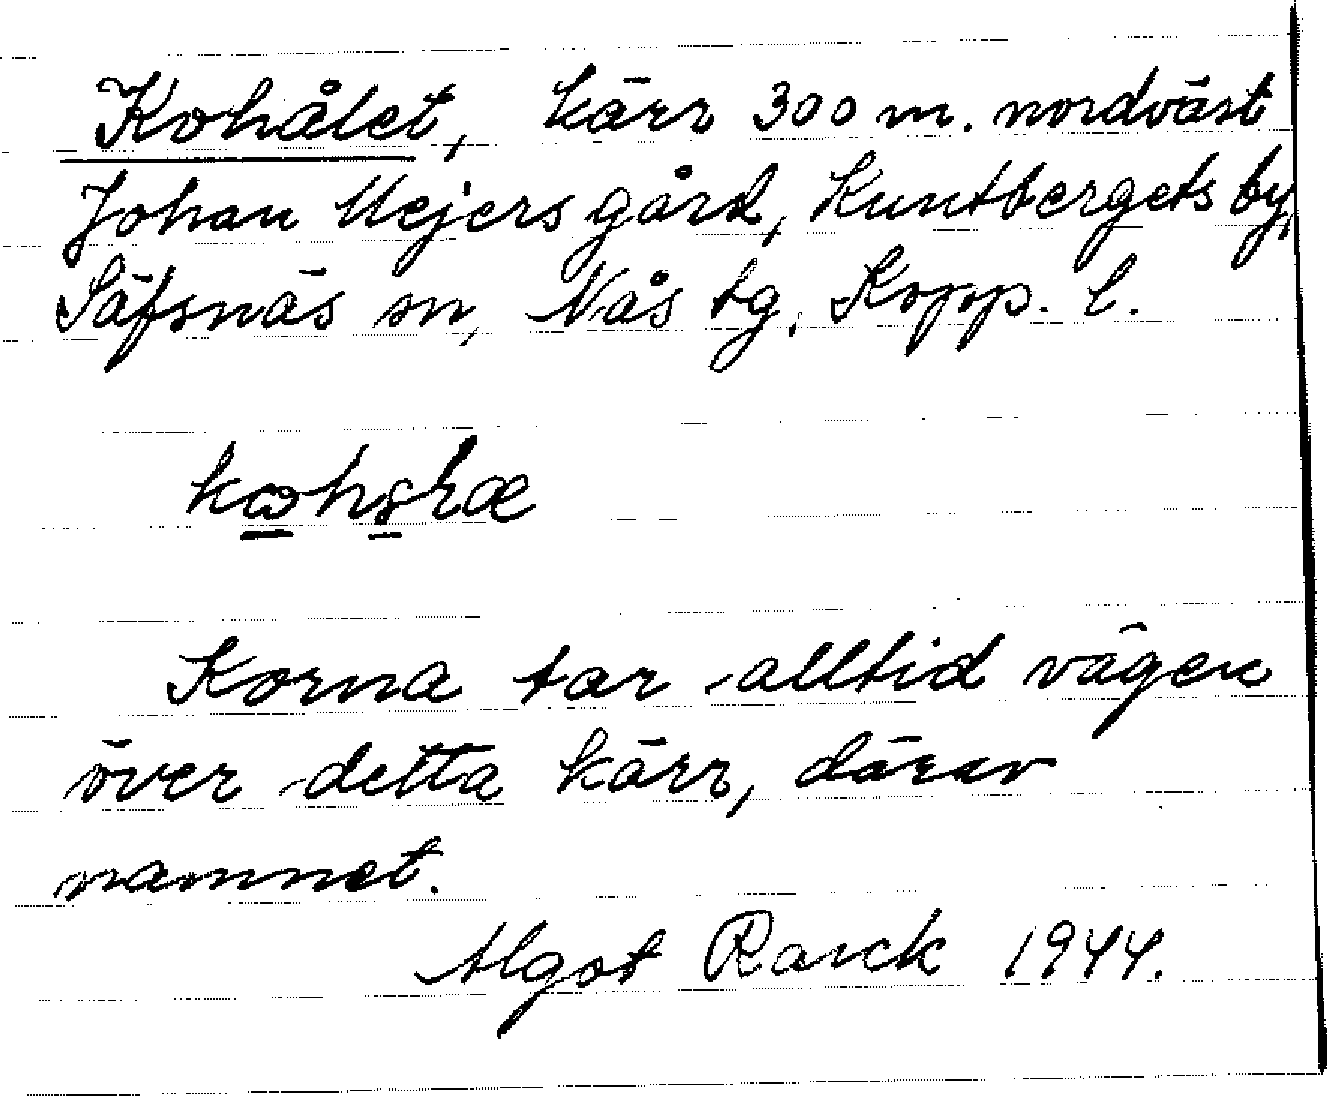 Kohålet, kärr 300 m. nordväst
Johan Mejers gård, Kuntbergets by,
Säfsnäs sn, Nås tg, Kopp. l.
Korna tar alltid vägen
över detta kärr, därav
namnet.
Algot Rarck 1944.